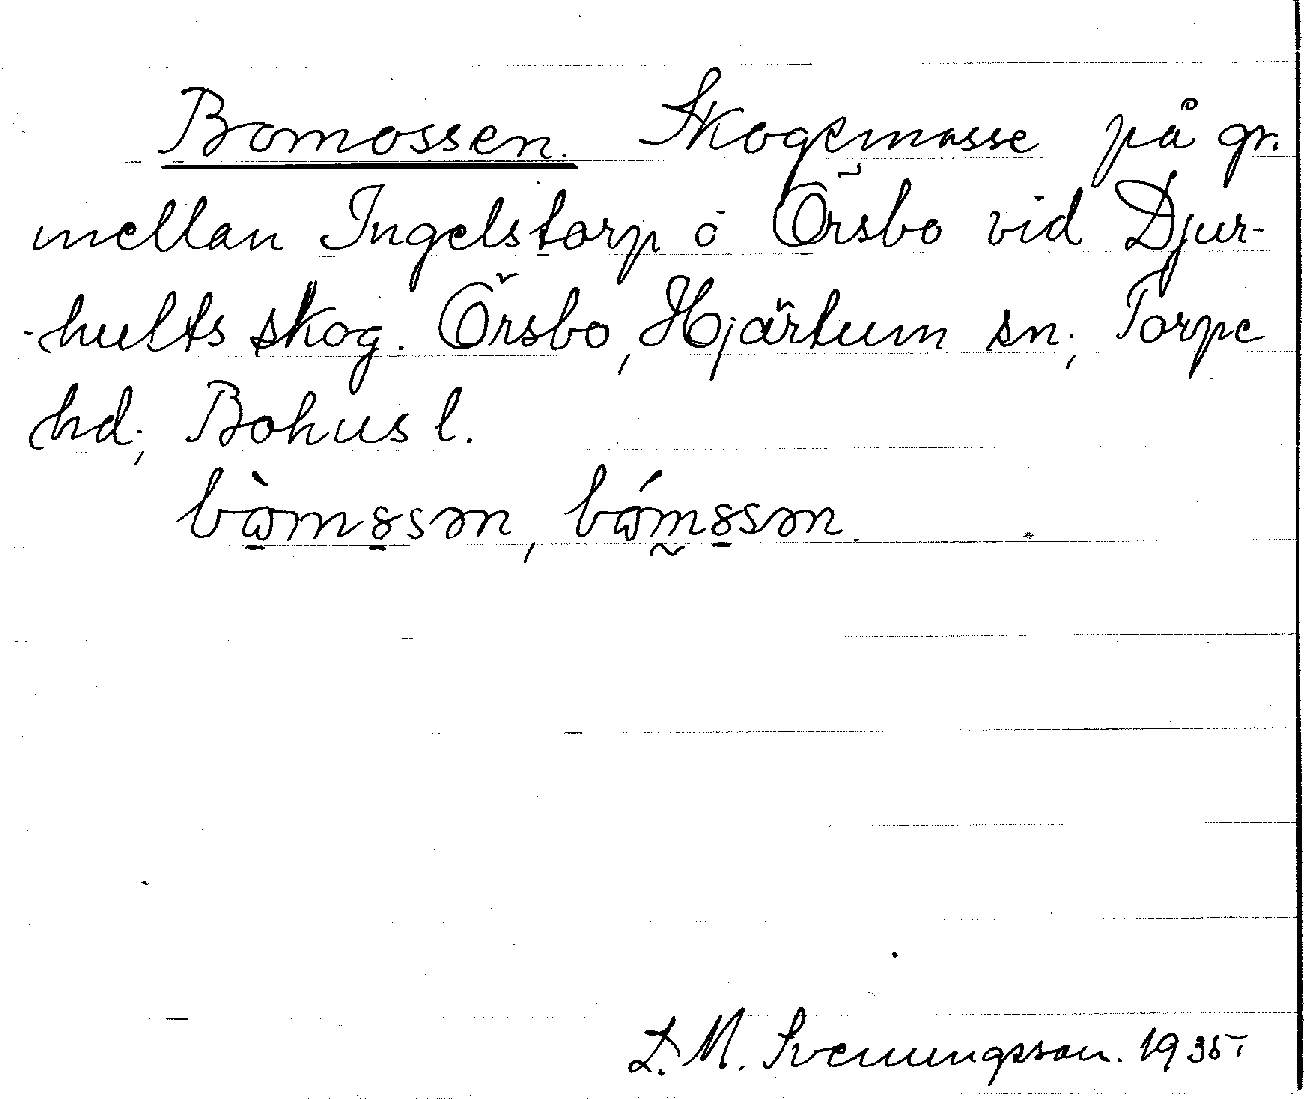 Bomossen. Skogsmosse på gr.
mellan Ingelstorp o Örsbo vid Djur-
hults skog. Örsbo, Hjärtum sn; Torpe
hd; Bohus l.
bòmossən, bómossən.
D. M. Svenungsson. 1935